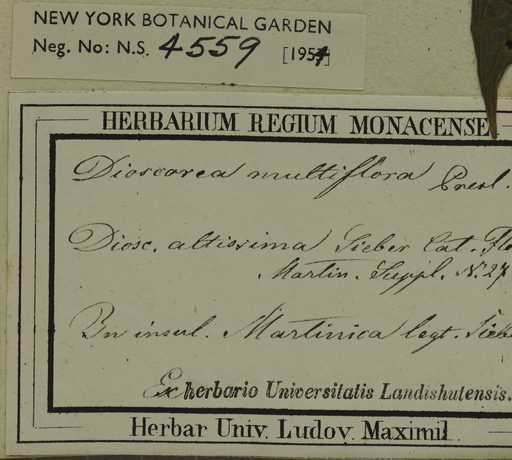 NEW YORK BOTANICAL GARDEN
Neg. No: N.S. 4559 [1954]
HERBARIUM REGIUM MONACENSE
Dioscorea multiflora Presl.
Diosc. altissima Sieber Cat. Flo
Martin. Suppl. N. 27
In insul. Martinica legt. Sieb
Ex herbario Universitatis Landishutensis.
Herbar Univ. Ludov. Maximil.